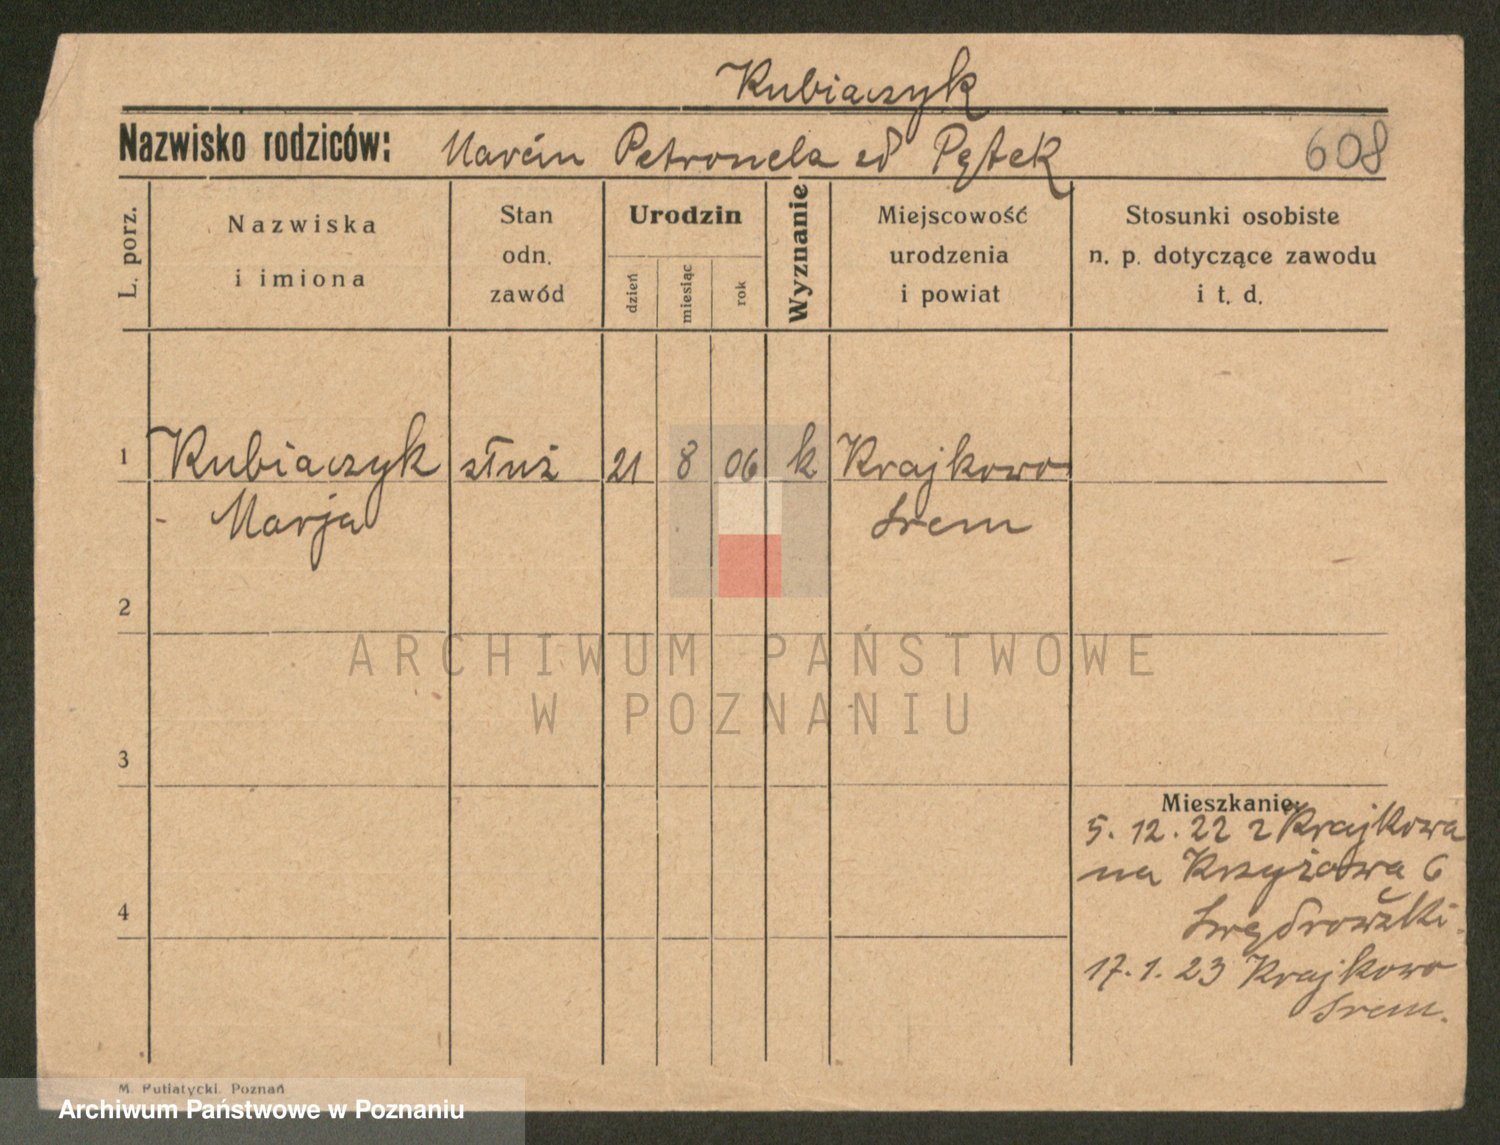 Kubiaczyk
Nazwisko rodziców: Marcin Petronela Pętek 608
L. porz.
Nazwiska
i imiona
Stan
odn.
zawód
Urodzin
dzień
miesiąc
rok
Wyznanie
Miejscowość
urodzenia
i powiat
Stosunki osobiste
n. p. dotyczące zawodu
i t. d.
1 Kubiaczyk służ 21 8 06 k Krajkowo
Marja Srem
2
ARCHIWUM PAŃSTWOWE
W POZNANIU
3
Mieszkanie:
5. 12. 22 z Krajkowa
na Krzyżowa 6
4
17. 1. 23 Krajkowo
Srem.
M. Putiatycki, Poznań
Archiwum Państwowe w Poznaniu